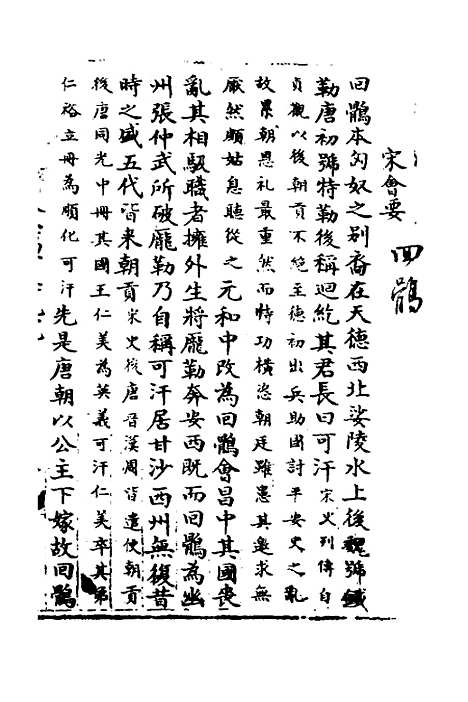 宋會要
回鶻
回鶻本匈奴之别裔在天德西北娑陵水上後魏號鐵
勒唐初號特勒後稱迴紇其君長曰可汗宋史列傳自
貞觀以後朝貢不絶至德初出兵助國討平安史之亂
故累朝恩礼最重然而恃功横恣朝廷雖患其邀求無
厭然頗姑息聽從之元和中改為回鶻會昌中其國喪
亂其相馺職者擁外生將龐勒奔安西既而回鶻為幽
州張仲武所破龐勒乃自稱可汗居甘沙西州無復昔
時之盛五代皆来朝貢宋史後唐晋漢周皆遣使朝貢
後唐同光中冊其國王仁美為英義可汗仁美卒其弟
仁裕立冊為順化可汗先是唐朝以公主下嫁故回鶻